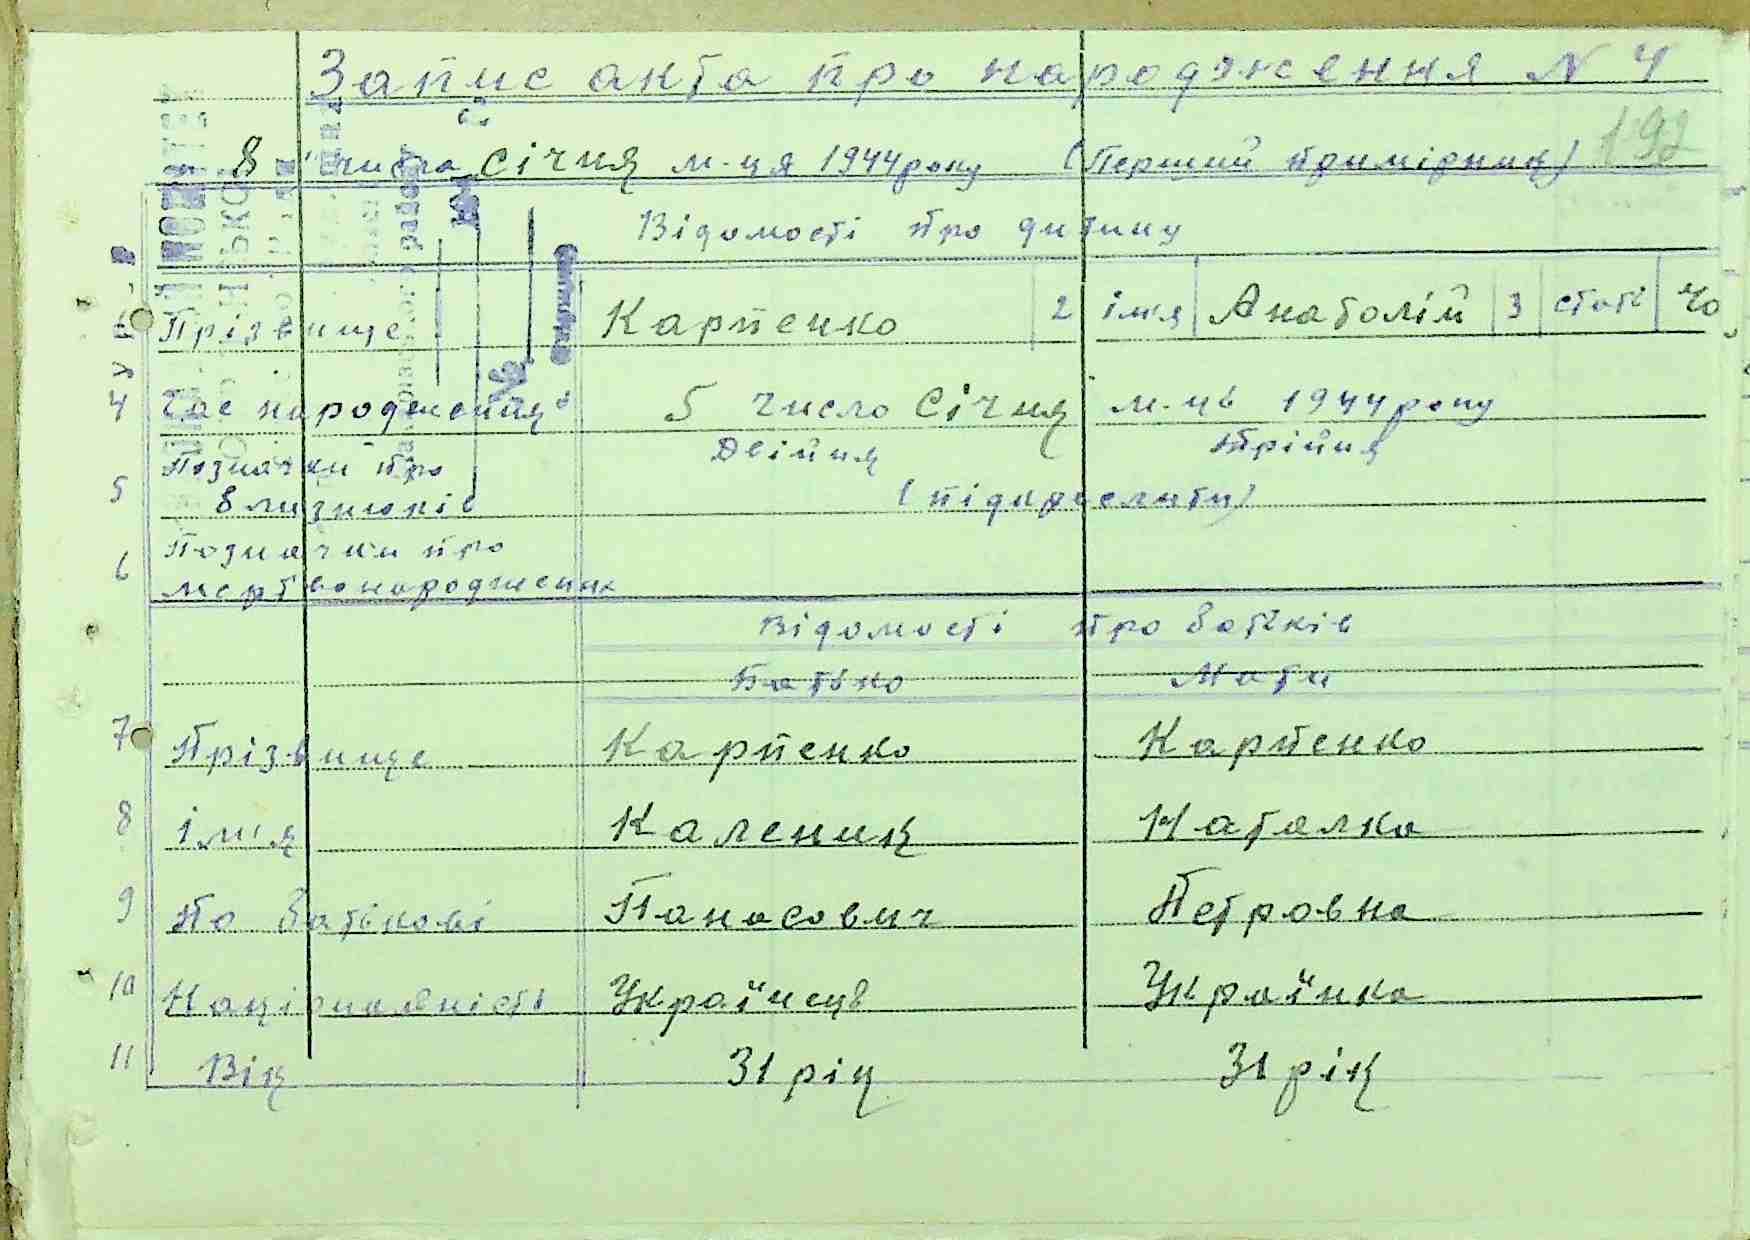 Запис акта про народження N 4
192
8 числа січня м-ця 1944 року (Перший примірник)
Відомості про дитину
Прізвище Карпенко 2 ім'я Анатолій 3 стать Чо
4 Час народження 5 число Січня м-ця 1944 року
Позначки про Двійня Трійня
5 близнюків (підкреслити)
Позначки про
6 мертвонароджених
Відомості про батьків
Батько Мати
7 Прізвище Карпенко Карпенко
8 ім'я Каленик Наталка
9 По батькові Панасович Петровна
10 Національність Українець Українка
11 Вік 31 рік 31 рік